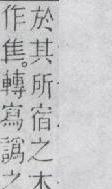 於其所宿之木
作隹。轉寫譌之